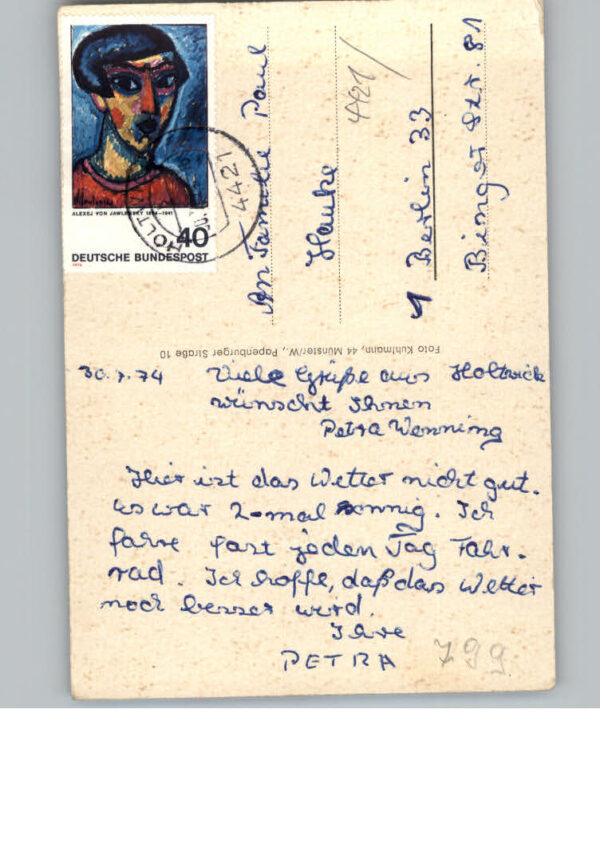 ALEXEJ VON JAWLENSKY 1864-1941
40
DEUTSCHE BUNDESPOST
1974
4421
An Familie Paul
Hauke
4421/
1 Berlin 33
Binger Str. 81
Foto Kuhlmann, 44 Münster/W., Papenburger Straße 10
30.7.74 Viele Grüße aus Holtwick
wünscht Ihnen
Petra Wenning
Hier ist das Wetter nicht gut.
Es war 2-mal sonnig. Ich
fahre fast jeden Tag Fahr-
rad. Ich hoffe, daß das Wetter
noch besser wird.
Ihre
PETRA
799